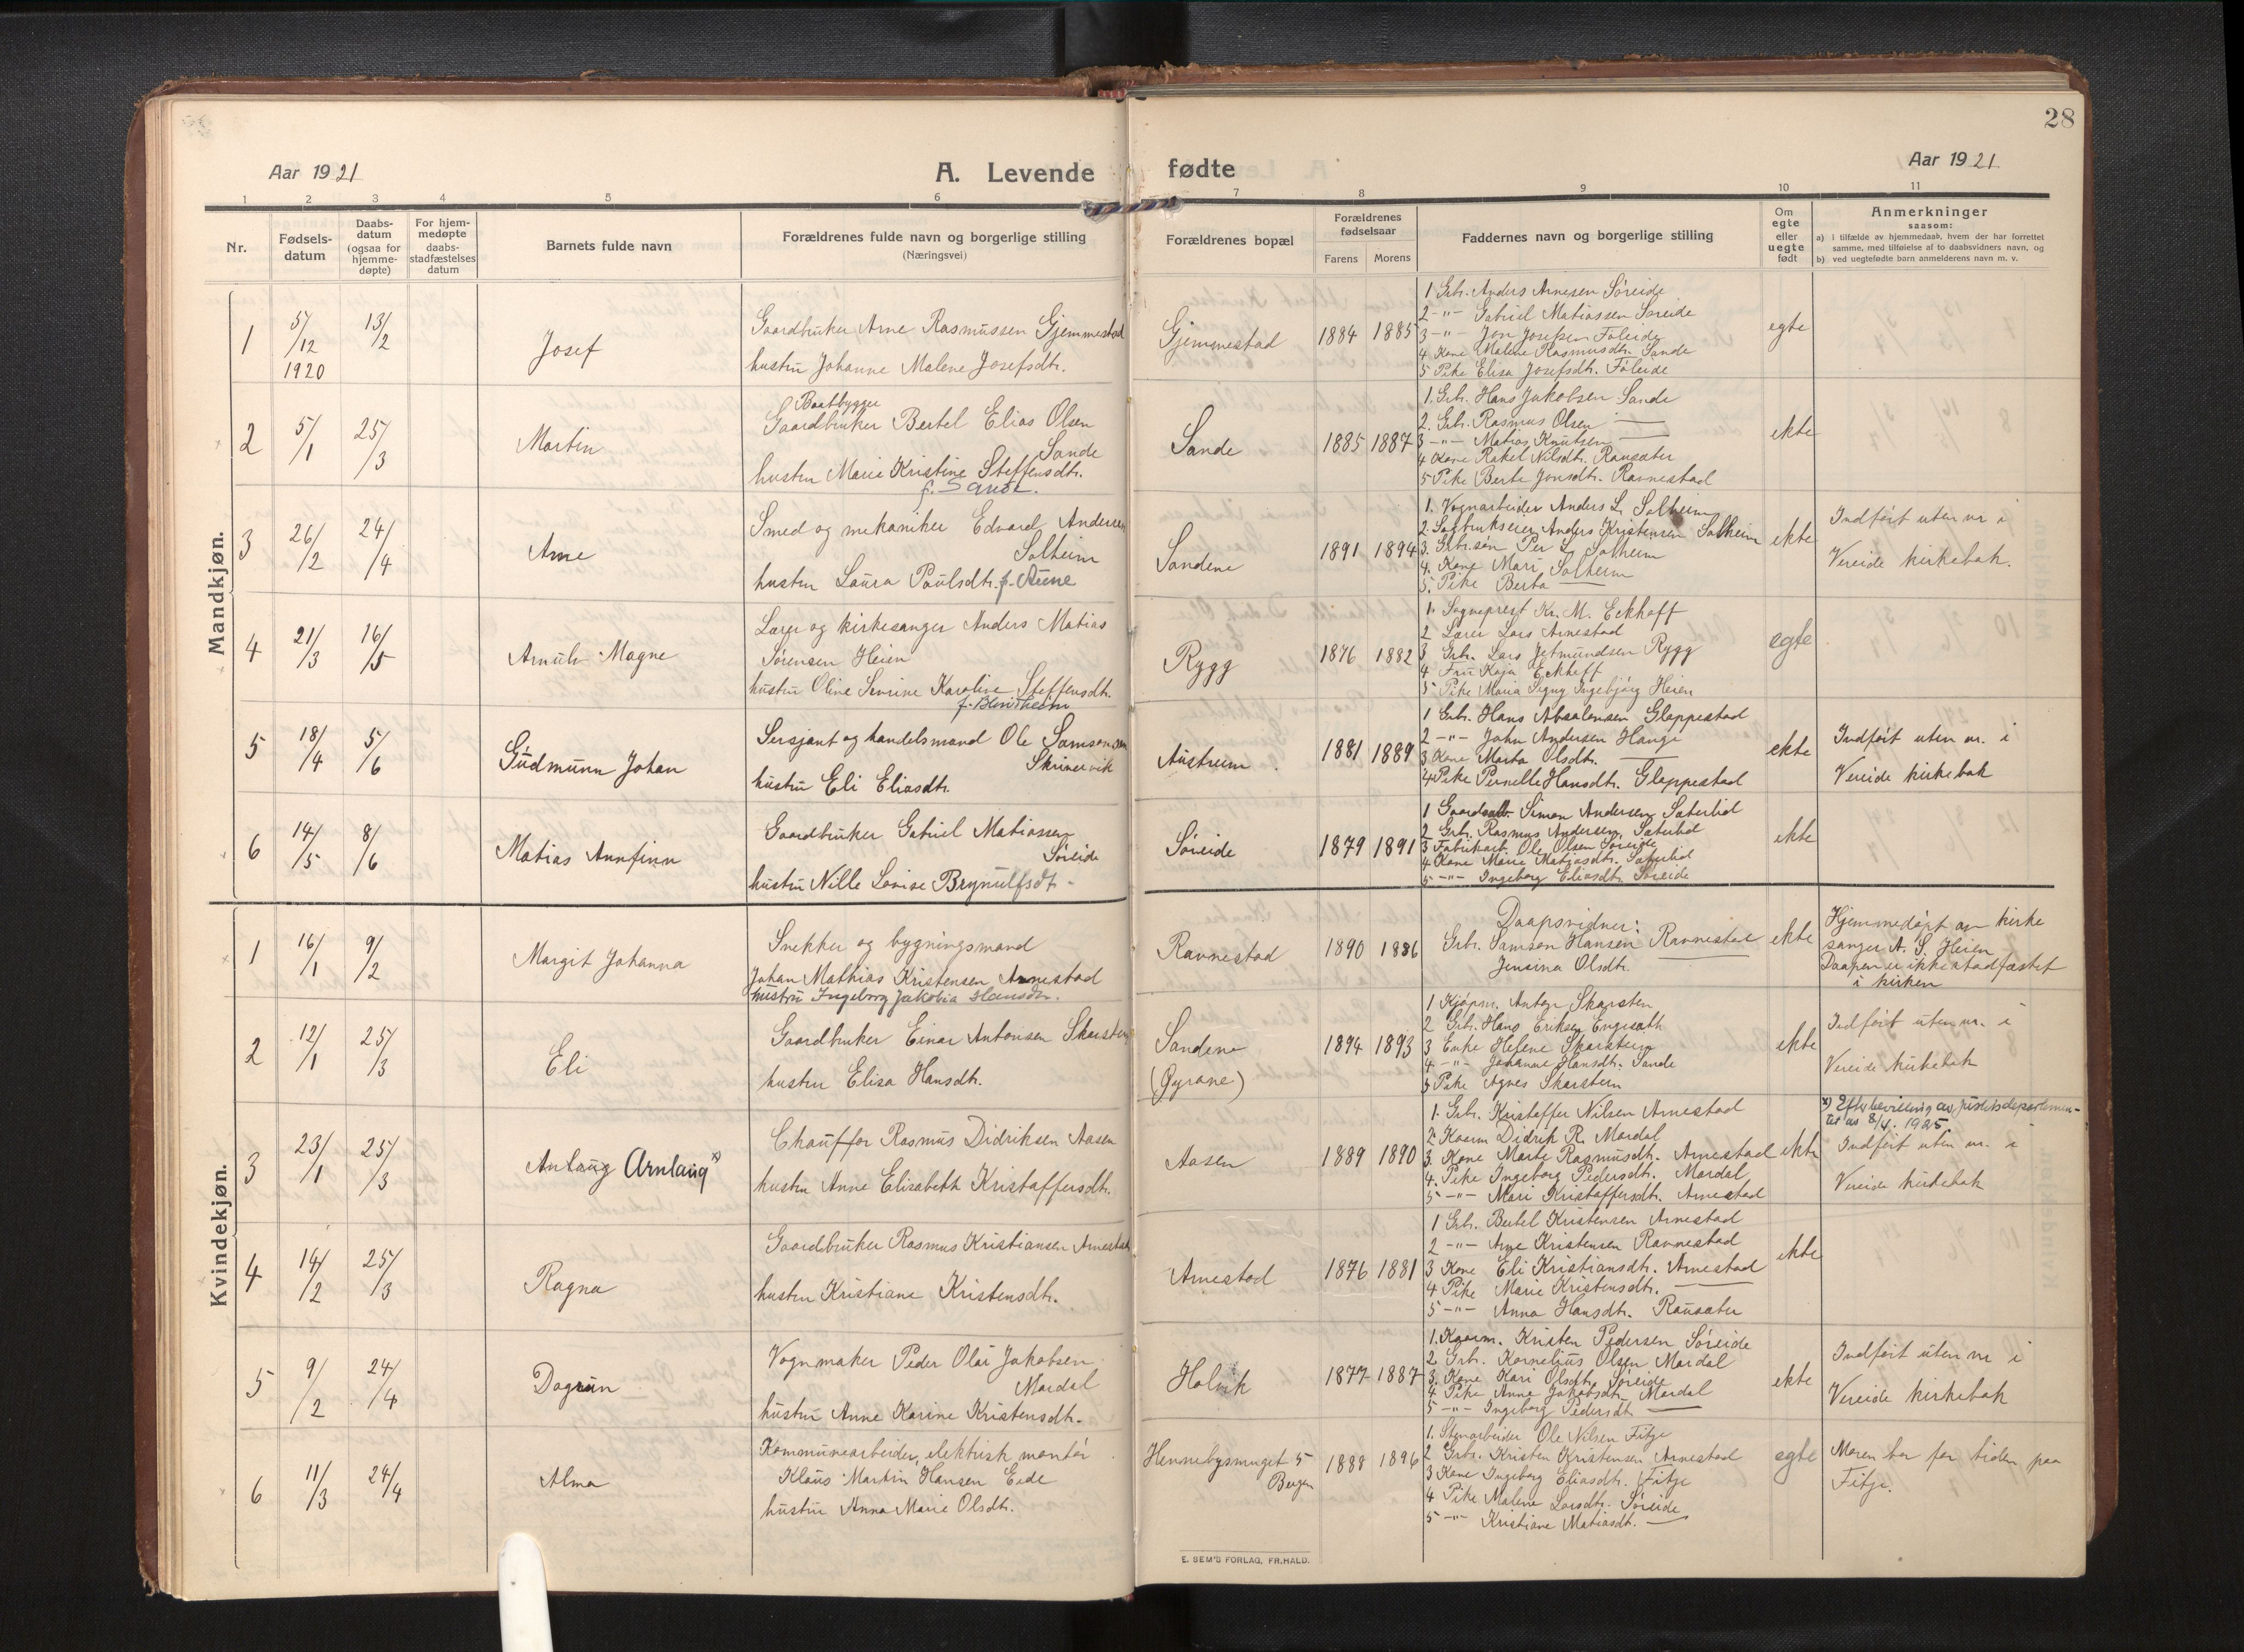 28
Aar 1921
A. Levende fødte
Aar 1921
1 2 3 4 5 6 7 8 9 10 11
Nr.
Fødsels-
datum
Daabs-
datum
(ogsaa for
hjemme-
døpte)
For hjem-
medøpte
daabs-
stadfæstelses
datum
Barnets fulde navn
Forældrenes fulde navn og borgerlige stilling
(Næringsvei)
Forældrenes bopæl
Forældrenes
fødselsaar
Farens Morens
Faddernes navn og borgerlige stilling
Om
egte
eller
uegte
født
Anmerkninger
saasom:
a) i tilfælde av hjemmedaab, hvem der har forrettet
samme, med tilføielse af to daabsvidners navn, og
b) ved uegtefødte barn anmelderens navn m. v.
Mandkjøn.
1
5/12
1920
13/2
Josef
Gaardbruker Arne Rasmussen Gjemmestad
hustru Johanne Malene Josefsdtr.
Gjemmestad
1884 1885
1 Grbr. Anders Arnesen Søreide
2 -"- Gabriel Matiassen Søreide
3 -"- Jon Josefsen Føleide
4 Kone Malene Rasmusdtr. Sande
5 Pike Elisa Josefsdtr. Føleide
egte
2
5/1
25/3
Martin
Baatbygger
Gaardbruker Bertel Elias Olsen
Sande
hustru Marie Kristine Steffensdtr.
f. Sande.
Sande
1885 1887
1. Grbr. Hans Jakobsen Sande
2. Grbr. Rasmus Olsen —
3 -"- Matias Knutsen —
4 Kone Rakel Nilsdtr. Rausæter
5 Pike Berte Jonsdtr. Ravnestad
ekte
3
26/2
24/4
Arne
Smed og mekaniker Edvard Andersen
Solheim
hustru Laura Paulsdtr. f. Aune
Sandene
1891 1894
1. Vognarbeider Anders L. Solheim
2. Sagbrukseier Anders Kristensen Solheim
3. Grbr.søn Per L. Solheim
4. Kone Mari Solheim
5. Pike Berta —
ekte
Indført uten nr i
Vereide kirkebok.
4
21/3
16/5
Arnulv Magne
Lærer og kirkesanger Anders Matias
Sørensen Heien
hustru Oline Severine Karoline Steffensdtr.
Rygg
1876 1882
1. Sogneprest Kr. M. Eckhoff
2 Lærer Lars Arnestad
3 Grbr. Lars Jetmundsen Rygg
4 Fru Kaja Eckhoff
5 Pike Maria Signy Ingebjørg Heien
egte
5
18/4
5/6
Gudmunn Johan
Sersjant og handelsmand Ole Samsonsen
Skrinervik
hustru Eli Eliasdtr.
Austreim
1881 1889
1 Grbr. Hans Absalonsen Gloppestad
2 -"- John Andersen Hauge
3 Kone Marta Olsdtr. —
4 Pike Pernille Hansdtr. Gloppestad
ekte
Indført uten nr. i
Vereide kirkebok
6
14/5
8/6
Matias Annfinn
Gaardbruker Gabriel Matiassen
Søreide
hustru Nille Lovise Brynulfsdtr.
Søreide
1879 1891
1 Simon Andersen Sæterlid
2 Grbr. Rasmus Andersen Sæterlid
3 Fabrikarb. Ole Olsen Søreide
4 Kone Marie Matiasdtr. Sæterlid
5 -"- Ingeborg Eliasdtr. Søreide
ekte
Kvindekjøn.
1
16/1
9/2
Margit Johanna
Snekker og bygningsmand
Johan Mathias Kristensen Arnestad
hustru Ingeborg Jakobia Hansdtr.
Ravnestad
1890 1886
Daapsvidner:
Grbr. Samson Hansen Ravnestad
Jensina Olsdtr. —
ekte
Hjemmedøpt av kirke
sanger A. S. Heien
Daapen er ikke stadfæstet
i kirken
2
12/1
25/3
Eli
Gaardbruker Einar Antonsen Skarsten
hustru Elisa Hansdtr.
Sandene
(Øyrane)
1894 1893
1 Kjøpm. Anton Skarsten
2 Grbr. Hans Eriksen Engesæth
3 Enke Helene Skarstein
4 -"- Johanne Hansdtr. Sande
5 Pike Agnes Skarstein
ekte
Indført uten nr. i
Vereide kirkebok
3
23/1
25/3
Anlaug Arnlaug x)
Chauffør Rasmus Didriksen Aasen
hustru Anne Elisabeth Kristoffersdtr.
Aasen
1889 1890
1. Grbr. Kristoffer Nilsen Arnestad
2. Kaarm. Didrik R. Mardal
3. Kone Marte Rasmusdtr. Arnestad
4. Pike Ingeborg Pedersdtr. Mardal
5 -"- Mari Kristoffersdtr. Arnestad
ekte
x) Efter bevilling av justisdepartemen-
tet av 8/4. 1925.
Indført uten nr. i
Vereide kirkebok
4
14/2
25/3
Ragna
Gaardbruker Rasmus Kristiansen Arnestad
hustru Kristiane Kristensdtr.
Arnestad
1876 1881
1 Grbr. Bertel Kristensen Arnestad
2 -"- Arne Kristensen Ravnestad
3 Kone Eli Kristiansdtr. Arnestad
4 Pike Marie Kristensdtr. —
5 -"- Anna Hansdtr. Rausæter
ekte
5
9/2
24/4
Dagrun
Vognmaker Peder Olai Jakobsen
Mardal
hustru Anne Karine Kristensdtr.
Holvik
1877 1887
1. Kaarm. Kristen Pedersen Søreide
2 Grbr. Kornelius Olsen Mardal
3. Kone Kari Olsdtr. Søreide
4 Pike Anna Jakobsdtr. Mardal
5 -"- Ingeborg Pedersdtr. —
ekte
Indført uten nr i
Vereide kirkebok
6
11/3
24/4
Alma
Kommunearbeider, elektrisk montør
Klaus Martin Hansen Eide
hustru Anna Marie Olsdtr.
Hennebysmuget 5
Bergen
1888 1896
1. Stenarbeider Ole Nilsen Fitje
2 Grbr. Kristen Kristensen Arnestad
3 Kone Ingeborg Eliasdtr. Fitje
4 Pike Malene Larsdtr. Søreide
5 -"- Kristiane Matiasdtr. —
egte
Moren bor for tiden paa
Fitje.
E. SEM'S FORLAG, FR.HALD.